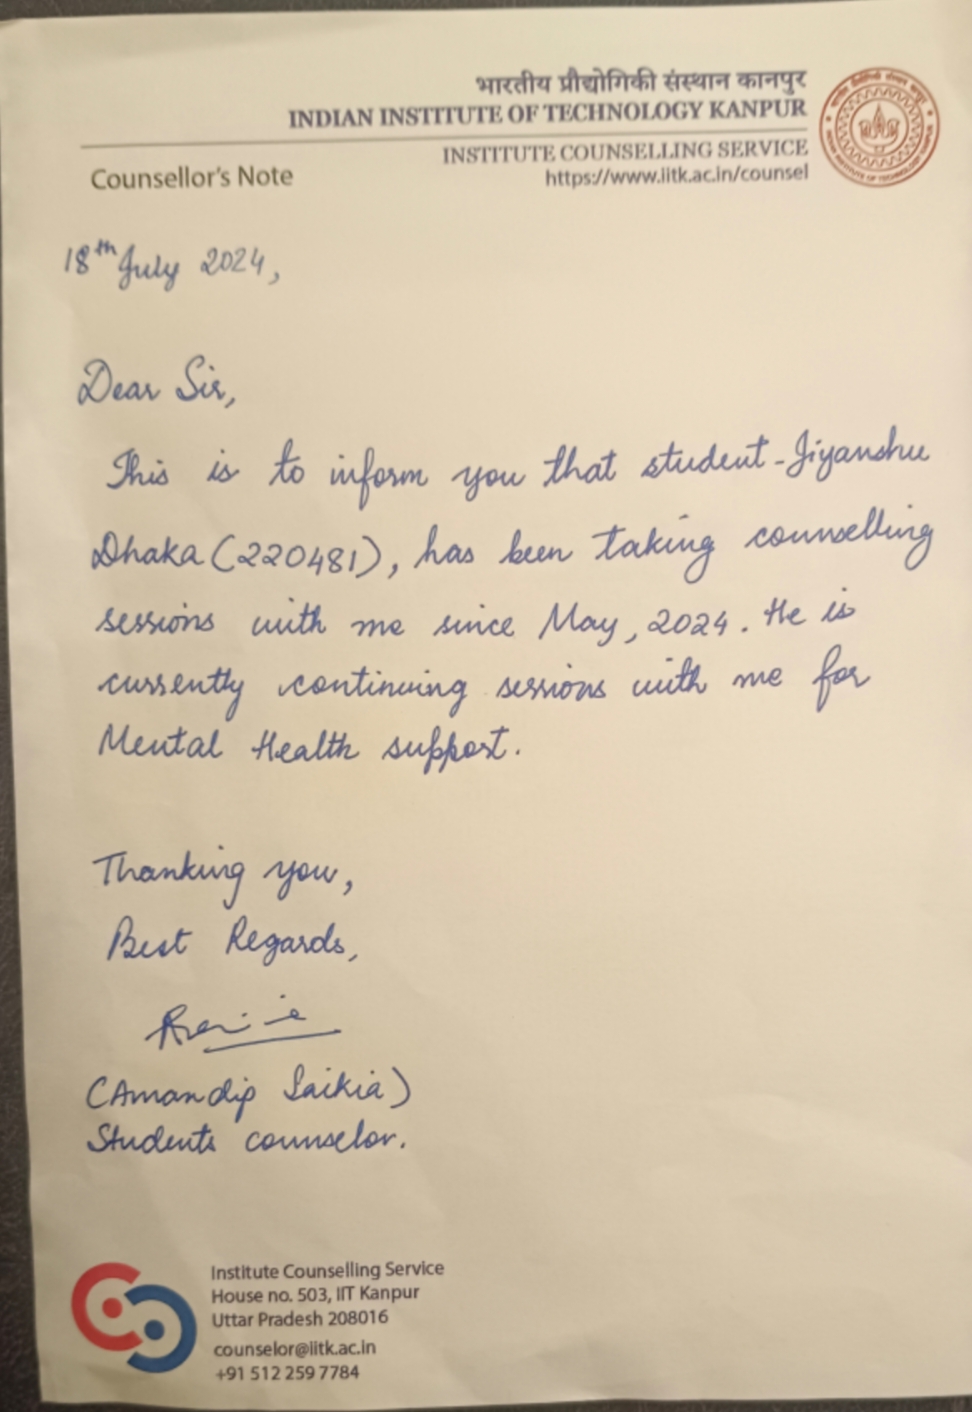 भारतीय प्रौद्योगिकी संस्थान कानपुर
INDIAN INSTITUTE OF TECHNOLOGY KANPUR
INSTITUTE COUNSELLING SERVICE
https://www.iitk.ac.in/counsel
Counsellor's Note
18th July 2024,
Dear Sir,
This is to inform you that student-Jiyanshu
Dhaka (220481), has been taking counselling
sessions with me since May, 2024. He is
currently continuing sessions with me for
Mental Health support.
Thanking you,
Best Regards,
(Amandip Saikia)
Students counselor.
Institute Counselling Service
House no. 503, IIT Kanpur
Uttar Pradesh 208016
counselor@iitk.ac.in
+91 512 259 7784